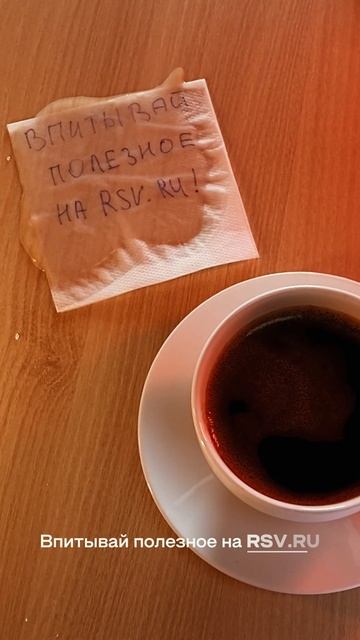 ВПИТЫВАЙ
ПОЛЕЗНОЕ
НА RSV.RU!
Впитывай полезное на RSV.RU